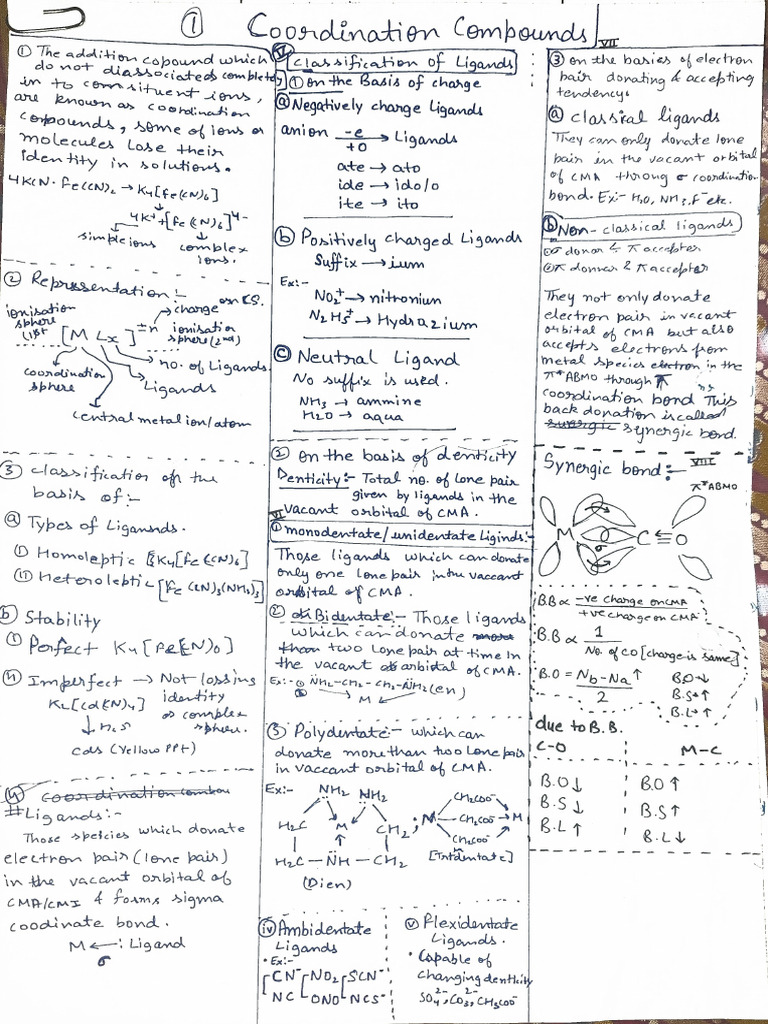 ① Coordination Compounds
① The addition copound which
do not diassociated completely
in to comstituent ions,
are known as coordination
copounds, some of ions or
molecules lose their
identity in solutions.
4KCN·Fe(CN)₂ → K₄[Fe(CN)₆]
4K⁺ + [Fe(CN)₆]⁴⁻
simple ions complex
ions.
② Representation:-
ionisation
sphere
(1st
on C.S.
charge
[M Lx]±n
ionisation
sphere (2nd)
no. of Ligands
Ligands
coordination
sphere
central metal ion/atom
③ Classification on the
basis of:-
ⓐ Types of Ligannds.
① Homoleptic K₄[Fe(CN)₆]
⑪ Heteroleptic [Fe(CN)₃(NH₃)₃]
ⓑ Stability
① Perfect K₄[Fe(CN)₆]
⑪ Imperfect → Not lossing
identity
of complex
spheru.
K₂[Cd(CN)₄]
↓ H₂S
cds (Yellow PPt)
④ Coordination compou
# Ligands:-
Those speicies which donate
electron pair (lone pair)
in the vacant orbital of
CMA/CMI & forms sigma
coodinate bond.
M ←: Ligand
σ
VI
Classification of Ligands
① on the Basis of charge
ⓐ Negatively charge Ligands
anion -e/+o → Ligands
ate → ato
ide → ido/o
ite → ito
ⓑ Positively charged Ligands
Suffix → ium
Ex:-
NO₂⁺ → nitronium
N₂H₅⁺ → Hydrazium
ⓒ Neutral Ligand
No suffix is used.
NH₃ → ammine
H₂O → aqua
② on the basis of denticity
Denticity:- Total no. of lone pair
given by ligands in the
vaccant orbital of CMA.
VI
① monodentate/unidentate Liginds:-
Those ligands which can donate
only one lone pair in the vaccant
orbital of CMA.
② Bidentate:- Those Ligands
which can donate more
than two lone pair at time in
the vacant orbital of CMA.
Ex:- NH₂-CH₂-CH₂-NH₂ (en)
M
③ Polydentate:- which can
donate more than two lone pair
in vaccant orbital of CMA.
Ex:-
NH₂ NH₂
H₂C M CH₂
H₂C — NH — CH₂
(Dien)
; N
CH₂COO⁻
CH₂COO⁻ → M
CH₂COO⁻
[Tridentate]
iv Ambidentate
Ligands
• Ex:-
CN⁻ NO₂ SCN⁻
NC ONO NCS⁻
v Flexidentate
Ligands.
• Capable of
changing denticity
SO₄²⁻, CO₃²⁻, CH₃COO⁻
VII
③ on the basies of electron
pair donating & accepting
tendency.
ⓐ classical ligands
They can only donate lone
pair in the vacant orbital
of CMA throug σ coordination
bond. Ex:- H₂O, NH₃, F⁻ etc.
ⓑ Non-classical ligands
σ donar & π accepter
π donner & π accepter
They not only donate
electron pair in vacant
orbital of CMA but also
accepts electrons from
metal species electron in the
π*ABMO through π
coordination bond This
back donation is called
suergic synergic bond.
VIII
Synergic bond:-
π*ABMO
M σ C≡O
B.B ∝ -ve charge on CMA / +ve charge on CMA
B.B ∝ 1 / No. of CO [charge is same]
B.O = Nb-Na↑ / 2
B.O↓
B.S↑
B.L↑
due to B.B.
C-O M-C
B.O↓ B.O↑
B.S↓ B.S↑
B.L↑ B.L↓